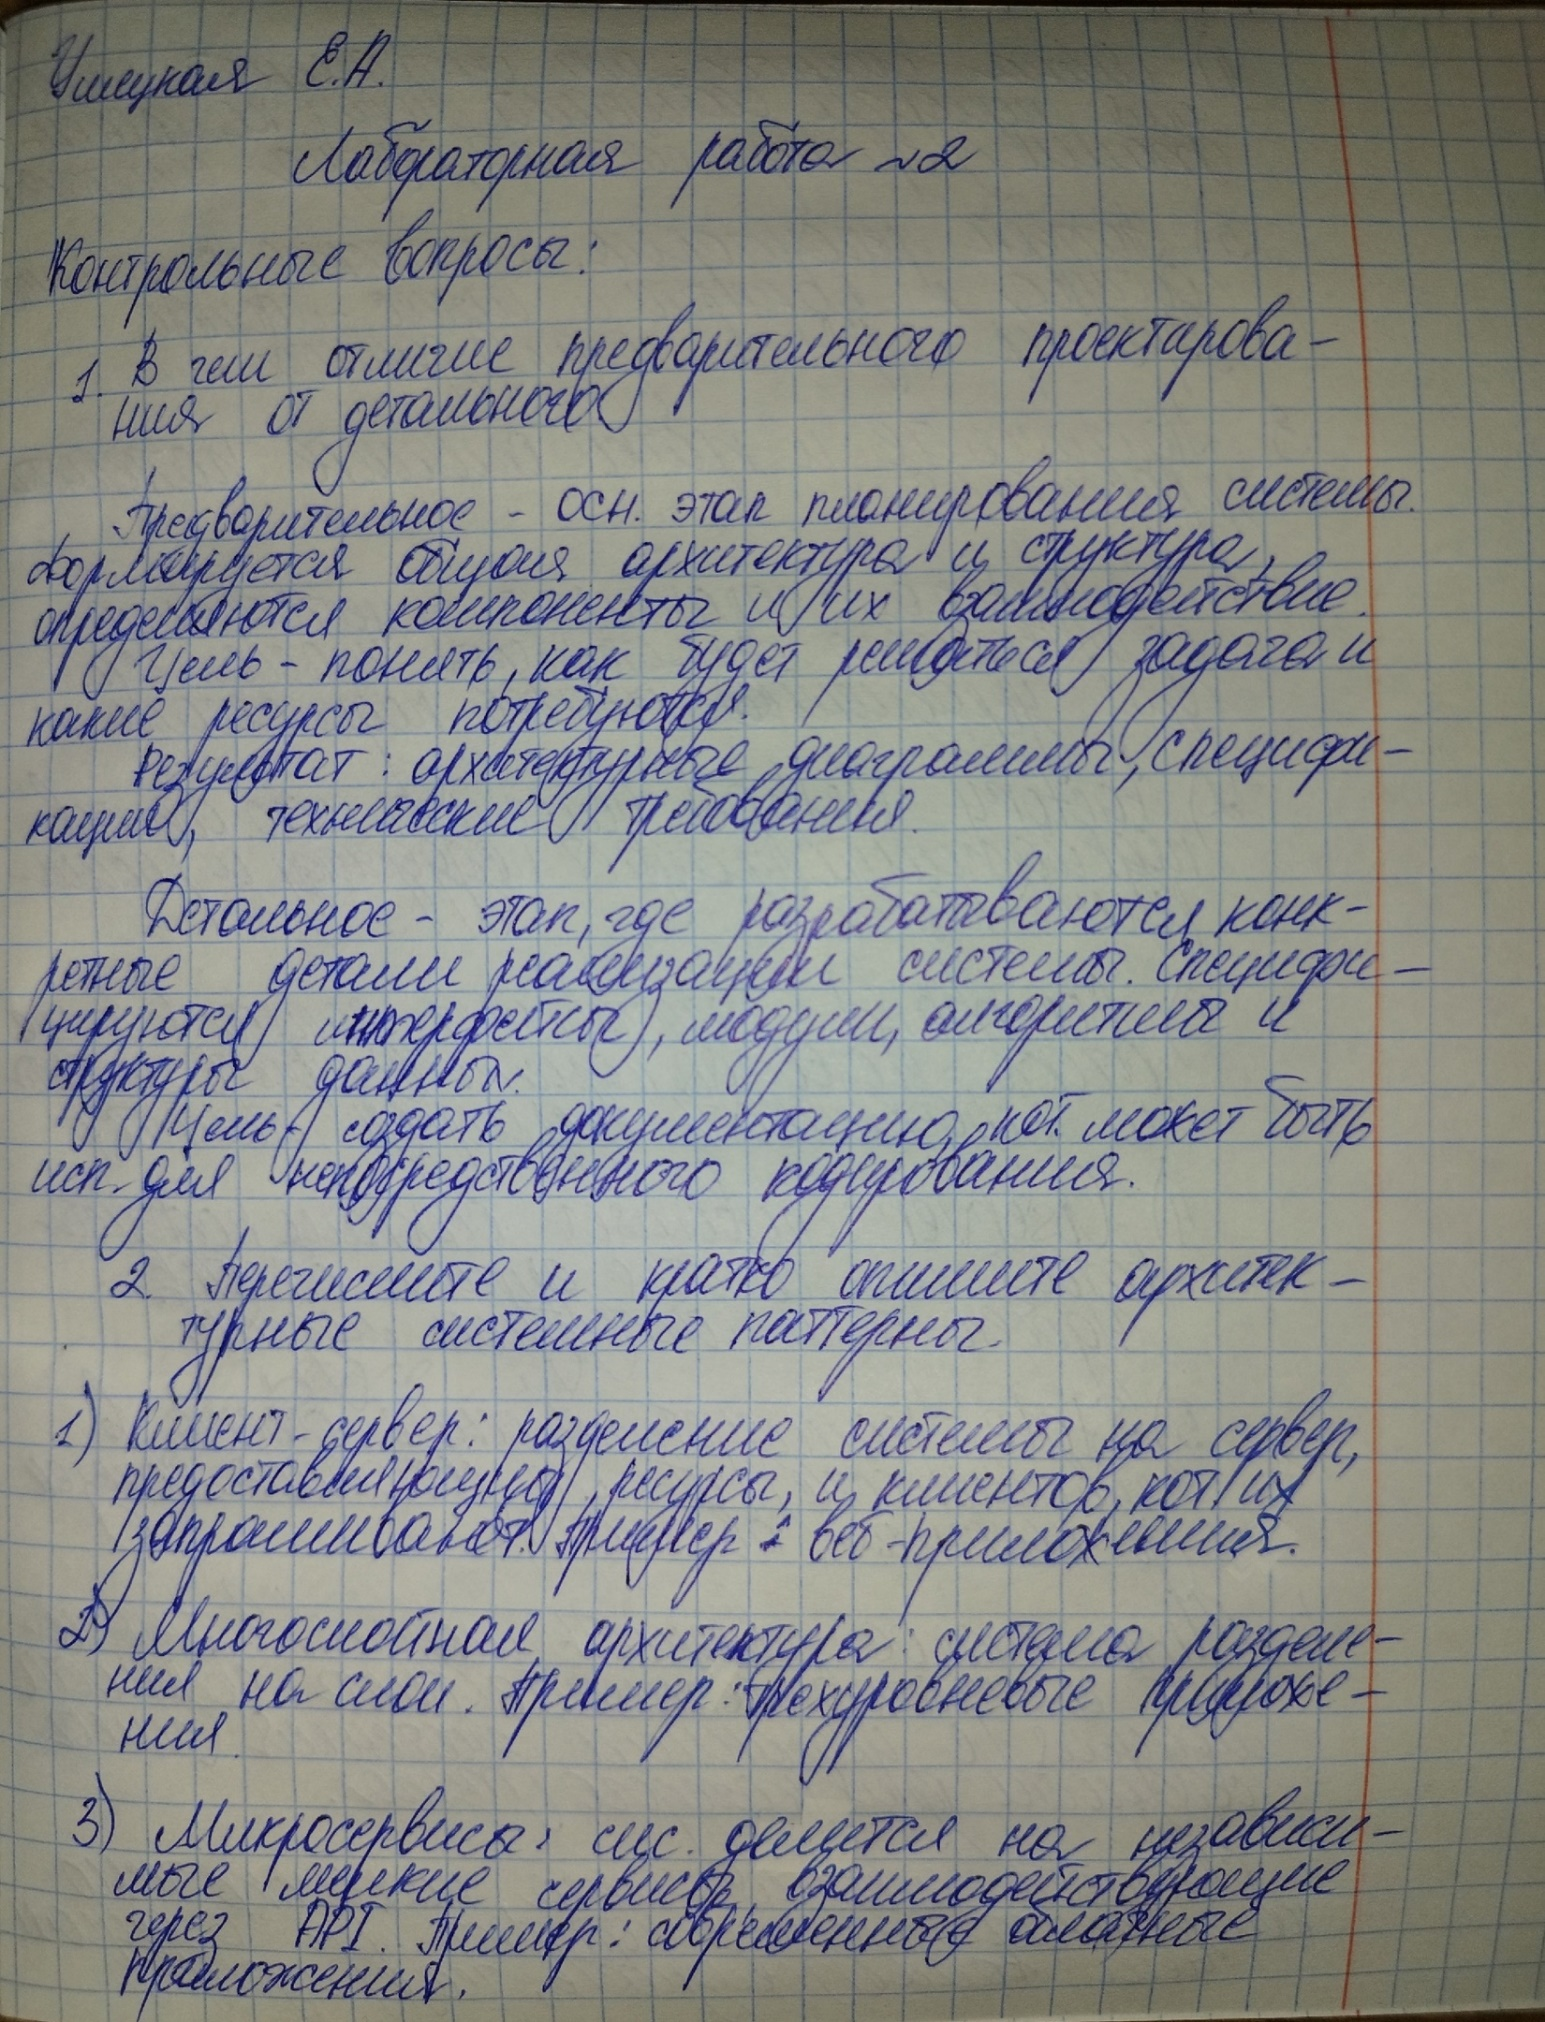 Е.А.
Лабораторная работа ~2
Контрольные вопросы:
1. В чем отличие предварительного проектирова-
ния от детального
Предварительное - осн. этап планирования системы.
Формируется общая архитектура и структура,
определяются компоненты и их взаимодействие.
Цель - понять, как будет решаться задача и
какие ресурсы потребуются.
Результат: архитектурные диаграммы, специфи-
кации, технические требования.
Детальное - этап, где разрабатываются конк-
ретные детали реализации системы. Специфи-
цируются интерфейсы, модули, алгоритмы и
структуры данных.
Цель - создать документацию, кот. может быть
исп. для непосредственного кодирования.
2. Перечислите и кратко опишите архитек-
турные системные паттерны.
1) Клиент-сервер: разделение системы на сервер,
предоставляющий ресурсы, и клиентов, кот. их
запрашивают. Пример: веб-приложения.
2) Многослойная архитектура: система разделе-
ния на слои. Пример: трехуровневые приложе-
ния.
3) Микросервисы: сис. делится на независи-
мые мелкие сервисы, взаимодействующие
через API. Пример: современные облачные
приложения.